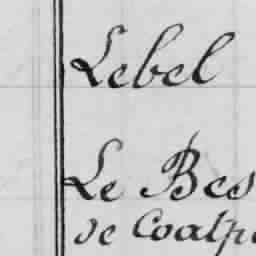 Lebel
Le Bes
de Coatp